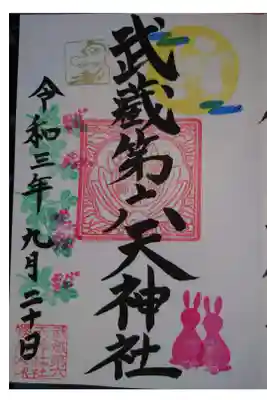 武蔵第六天神社
令和三年九月二十日